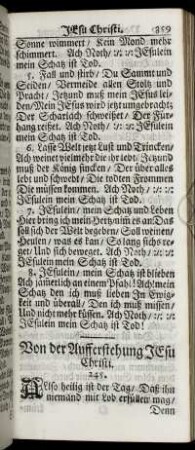 JESu Christi. 359
Sonne wimmert / Kein Mond mehr
schimmert. Ach Noth / :/: :/: JEsulein
mein Schatz ist Tod.
5. Fall und stirb / Du Sammt und
Seiden / Vermeide allen Stoltz und
Pracht / Jetzund muß mein JEsus lei-
den / Mein JEsus wird jetzt umgebracht;
Der Scharlach schweiset / Der Für-
hang reiset. Ach Noth / :/: :/: JEsulein
mein Schatz ist Tod.
6. Lasse Welt jetzt Lust und Trincken /
Ach weinet vielmehr die ihr lebt / Jetzund
muß der König sincken / Der über alles
lebt und schwebt / Die todten Frommen
Die müssen kommen. Ach Noth / :/: :/:
JEsulein mein Schatz ist Tod.
7. JEsulein / mein Schatz und Leben
Hier bring ich mein Hertz
soll sich der Welt begeben / Soll weinen /
Heulen / was es kan / So lang sichs re-
get / Und sich beweget. Ach Noth / :/: :/:
JEsulein mein Schatz ist Tod.
8. JEsulein / mein Schatz ist blieben
Ach jämerlich an einem Pfahl! Ach! mein
Schatz den ich muß lieben In Ewig-
keit und überall / Den ich muß missen /
Und nicht mehr küssen. Ach Noth / :/: :/:
JEsulein mein Schatz ist Tod!
Von der Aufferstehung JEsu
Christi.
245.
Also heilig ist der Tag / Daß ihn
niemand mit Lob erfüllen mag /
Denn